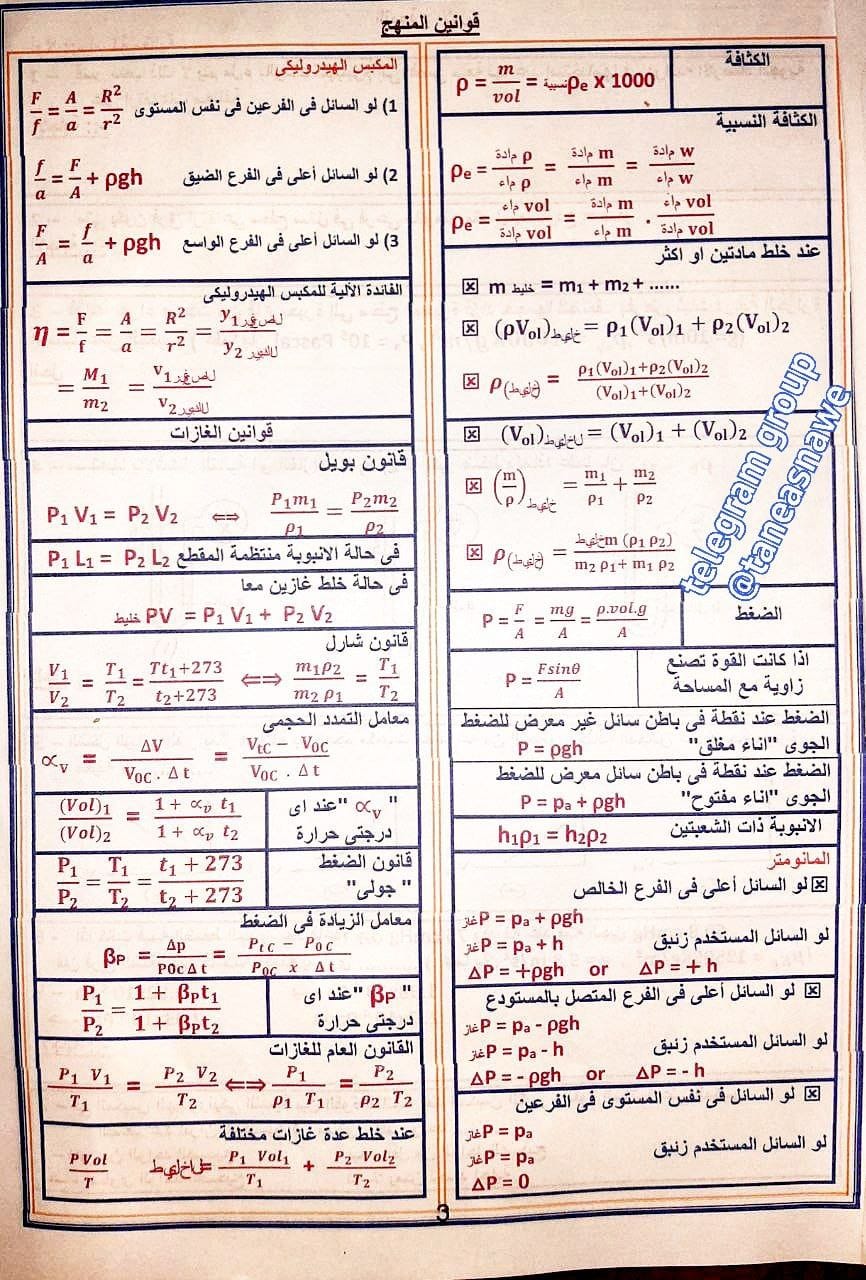 قوانين المنهج
الكثافة
ρ = m/vol = نسبية ρe X 1000
الكثافة النسبية
ρe = ρ مادة / ρ ماء = m مادة / m ماء = w مادة / w ماء
ρe = vol ماء / vol مادة = m مادة / m ماء . vol ماء / vol مادة
عند خلط مادتين او اكثر
☒ m خليط = m1 + m2 + ......
☒ (ρVol)خليط = ρ1(Vol)1 + ρ2(Vol)2
☒ ρ(خليط) = ρ1(Vol)1+ρ2(Vol)2 / (Vol)1+(Vol)2
☒ (Vol)الخليط = (Vol)1 + (Vol)2
☒ (m/ρ)خليط = m1/ρ1 + m2/ρ2
☒ ρ(خليط) = m خليط (ρ1 ρ2) / m2 ρ1+ m1 ρ2
الضغط
P = F/A = mg/A = ρ.vol.g/A
اذا كانت القوة تصنع
زاوية مع المساحة
P = Fsinθ/A
الضغط عند نقطة فى باطن سائل غير معرض للضغط
الجوى "اناء مغلق" P = ρgh
الضغط عند نقطة فى باطن سائل معرض للضغط
الجوى "اناء مفتوح" P = pa + ρgh
الانبوبة ذات الشعبتين h1ρ1 = h2ρ2
المانومتر
☒ لو السائل أعلى فى الفرع الخالص
غاز P = pa + ρgh
لو السائل المستخدم زئبق غاز P = pa + h
ΔP = +ρgh or ΔP = + h
☒ لو السائل أعلى فى الفرع المتصل بالمستودع
غاز P = pa - ρgh
لو السائل المستخدم زئبق غاز P = pa - h
ΔP = - ρgh or ΔP = - h
☒ لو السائل فى نفس المستوى فى الفرعين
غاز P = pa
لو السائل المستخدم زئبق غاز P = pa
ΔP = 0
المكبس الهيدروليكى
1) لو السائل فى الفرعين فى نفس المستوى F/f = A/a = R²/r²
2) لو السائل أعلى فى الفرع الضيق f/a = F/A + ρgh
3) لو السائل أعلى فى الفرع الواسع F/A = f/a + ρgh
الفائدة الألية للمكبس الهيدروليكى
η = F/f = A/a = R²/r² = y1 الصغير / y2 الكبير
= M1/m2 = v1 الصغير / v2 الكبير
قوانين الغازات
قانون بويل
P1 V1 = P2 V2 ⇔ P1m1/ρ1 = P2m2/ρ2
فى حالة الانبوبة منتظمة المقطع P1 L1 = P2 L2
فى حالة خلط غازين معا
خليط PV = P1 V1 + P2 V2
قانون شارل
V1/V2 = T1/T2 = Tt1+273/t2+273 ⇔ m1ρ2/m2 ρ1 = T1/T2
معامل التمدد الحجمى
∝v = ΔV / V0C . Δ t = VtC − V0C / V0C . Δ t
" ∝v "عند اى
درجتى حرارة
(Vol)1/(Vol)2 = 1 + ∝v t1 / 1 + ∝v t2
قانون الضغط
" جولى"
P1/P2 = T1/T2 = t1 + 273 / t2 + 273
معامل الزيادة فى الضغط
βP = Δp / P0c Δ t = PtC − P0C / P0C x Δ t
" βP "عند اى
درجتى حرارة
P1/P2 = 1 + βPt1 / 1 + βPt2
القانون العام للغازات
P1 V1/T1 = P2 V2/T2 ⇔ P1/ρ1 T1 = P2/ρ2 T2
عند خلط عدة غازات مختلفة
P Vol/T الخليط = P1 Vol1/T1 + P2 Vol2/T2
telegram group
@taneasnawe
3